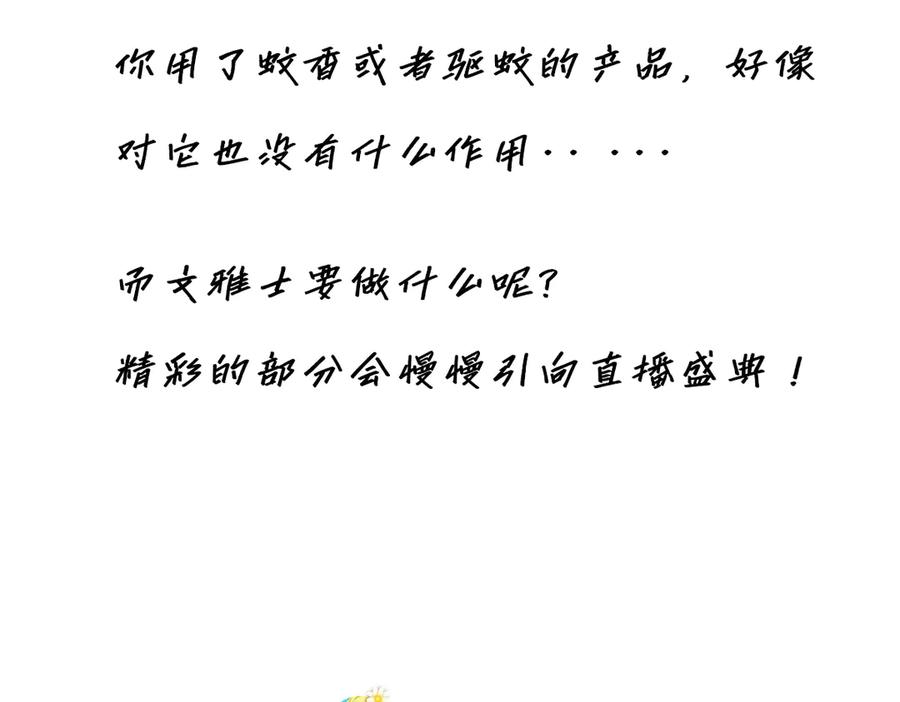 你用了蚊香或者驱蚊的产品，好像
对它也没有什么作用·· ····
而文雅士要做什么呢？
精彩的部分会慢慢引向直播盛典！